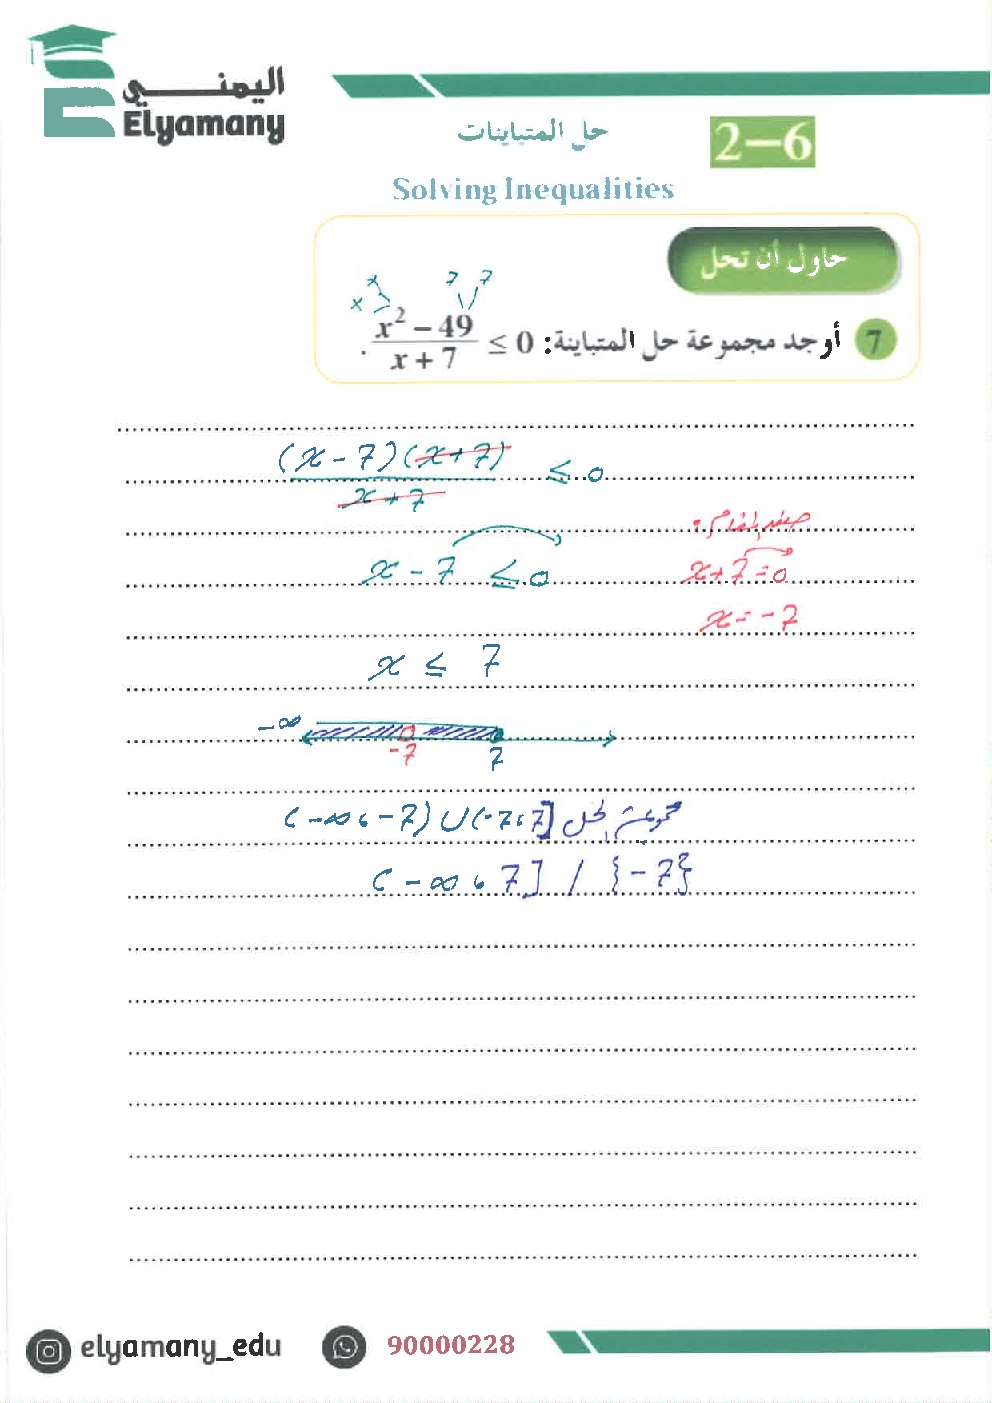 اليمني
Elyamany
حل المتباينات
2-6
Solving Inequalities
حاول أن تحل
7 أوجد مجموعة حل المتباينة: (x² - 49)/(x + 7) ≤ 0.
x x 7 7
(x - 7)(x + 7) / (x + 7) ≤ 0
صفر المقام
x - 7 ≤ 0
x + 7 = 0
x = -7
x ≤ 7
-∞ -7 7
(-∞ ، -7) ∪ (-7 ، 7] مجموعة الحل
(-∞ ، 7] / {-7}
elyamany_edu 90000228